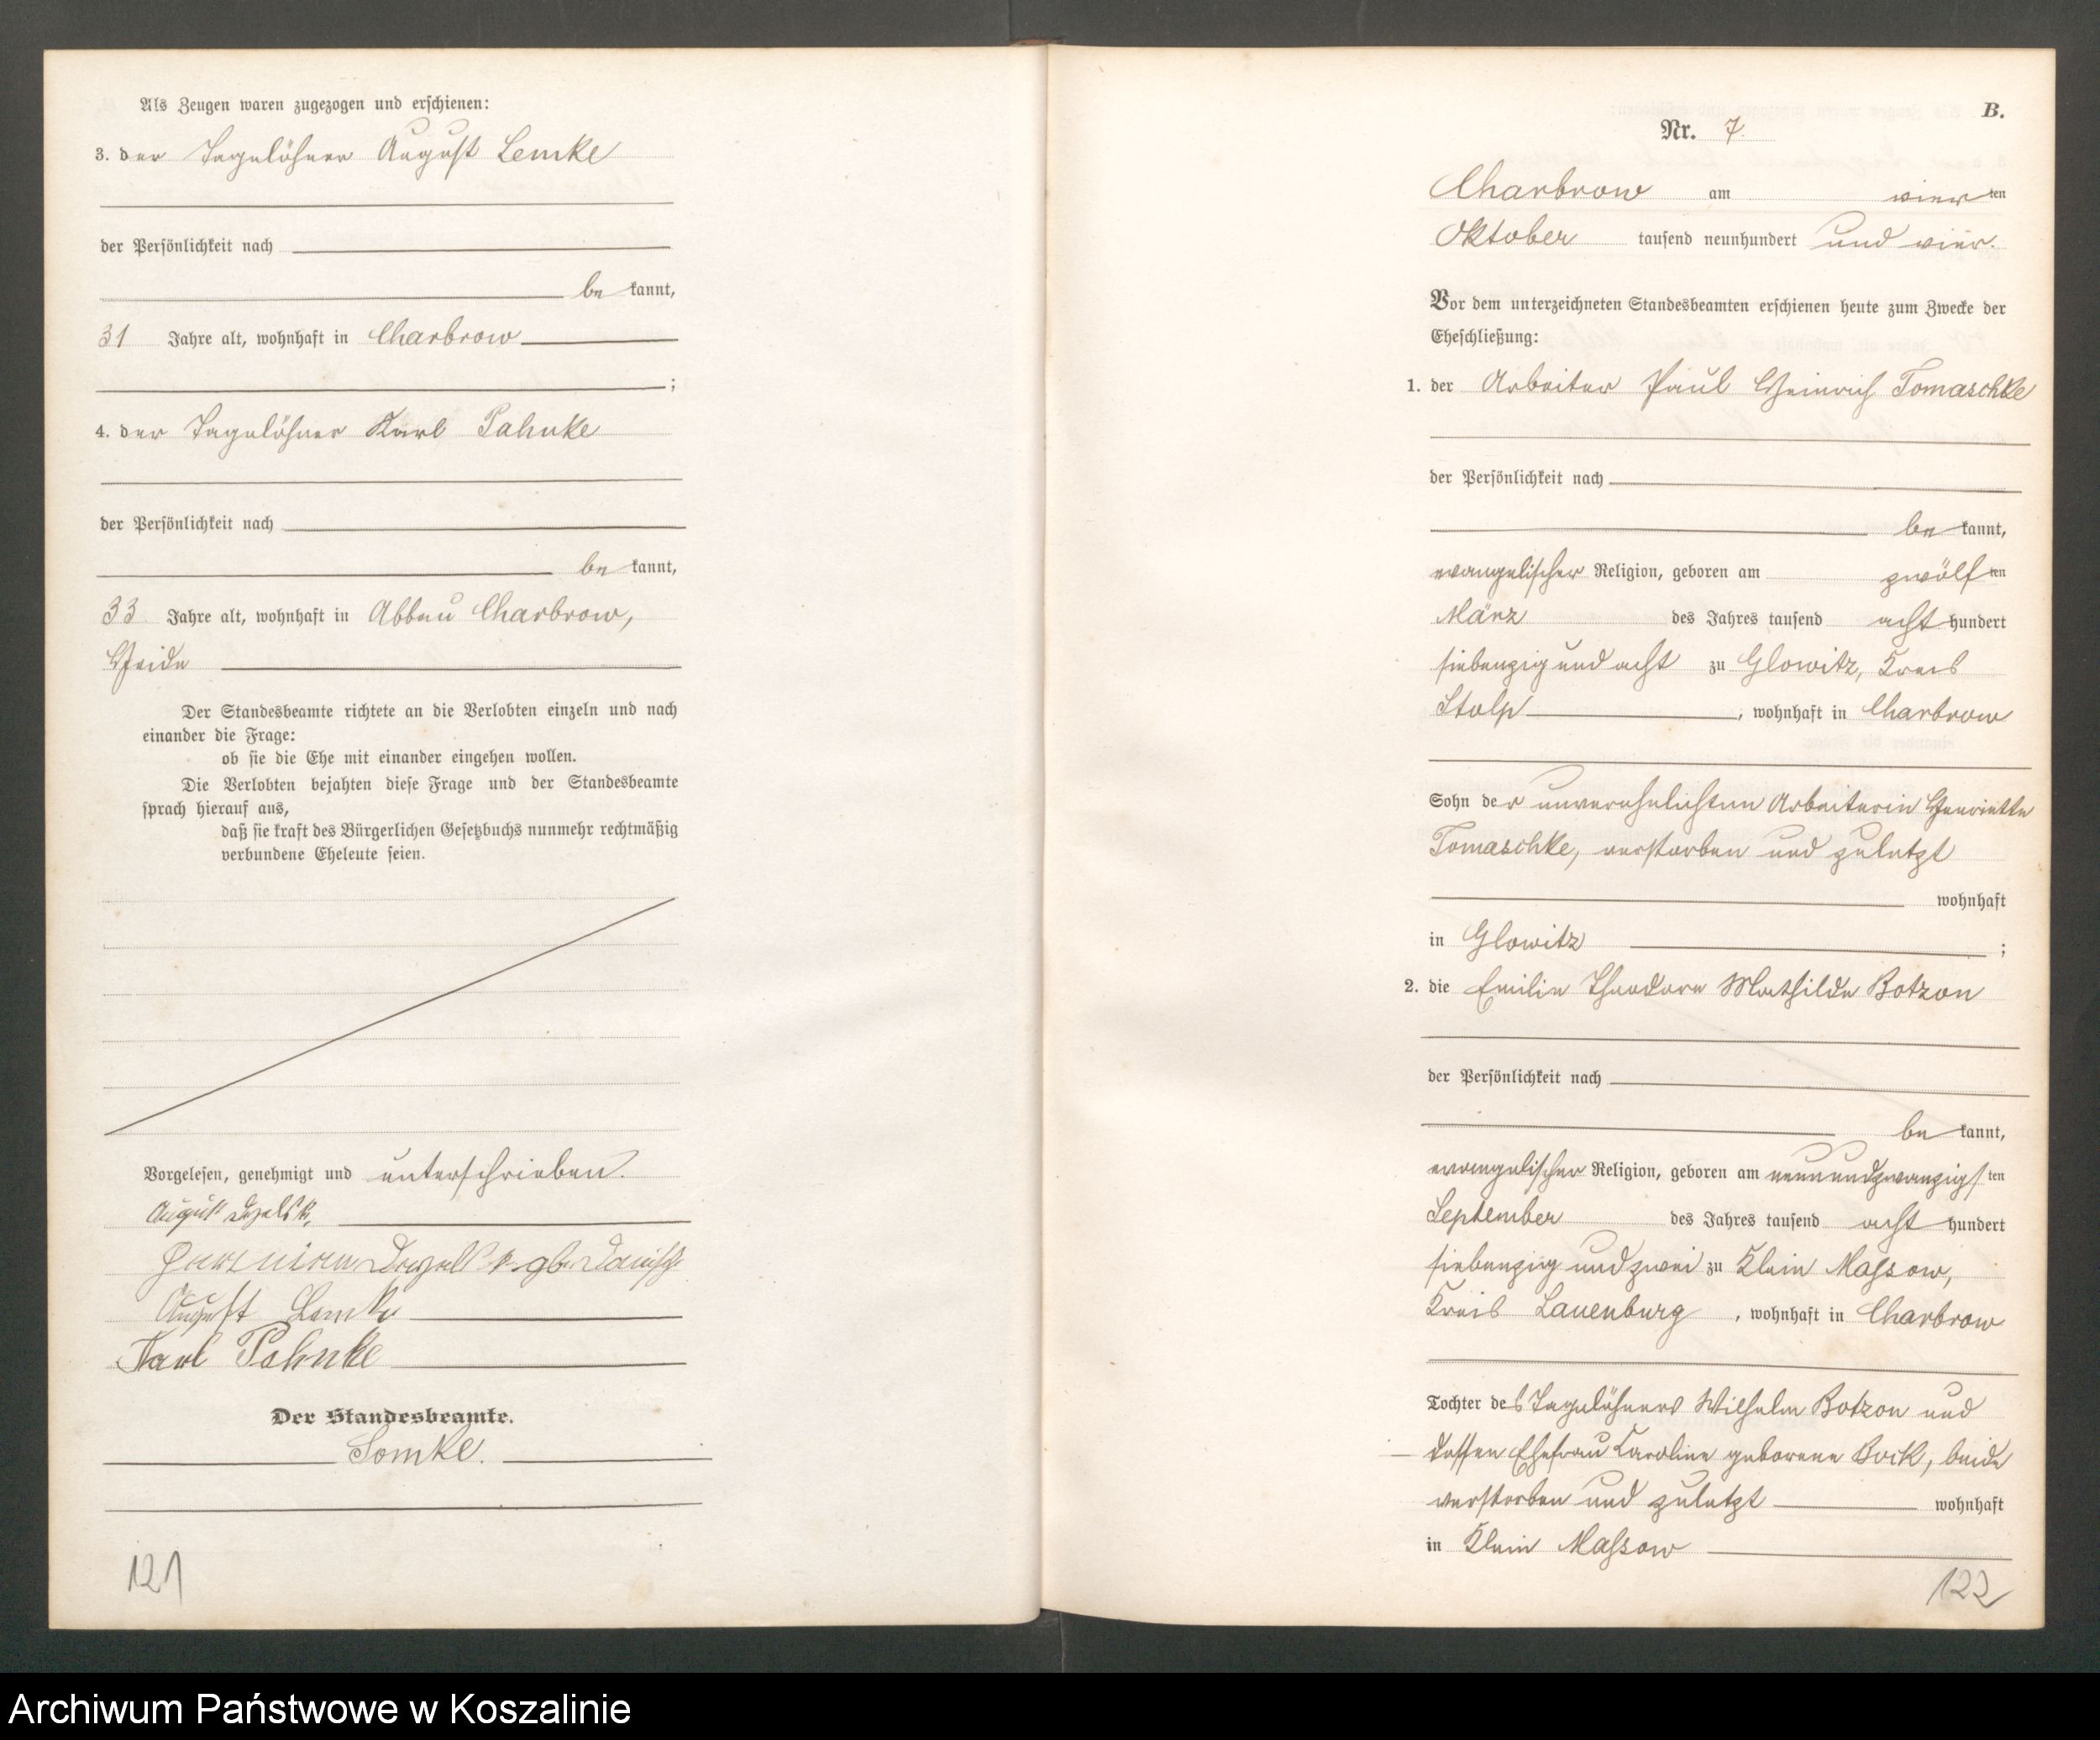 Als Zeugen waren zugezogen und erschienen:
3. der Tagelöhner August Lemke
der Persönlichkeit nach
be kannt,
31 Jahre alt, wohnhaft in Charbrow
;
4. der Tagelöhner Karl Pahnke
der Persönlichkeit nach
be kannt,
33 Jahre alt, wohnhaft in Abbau Charbrow,
Heide
Der Standesbeamte richtete an die Verlobten einzeln und nach
einander die Frage:
ob sie die Ehe mit einander eingehen wollen.
Die Verlobten bejahten diese Frage und der Standesbeamte
sprach hierauf aus,
daß sie kraft des Bürgerlichen Gesetzbuchs nunmehr rechtmäßig
verbundene Eheleute seien.
Vorgelesen, genehmigt und unterschrieben.
August
August Lemke
Karl Pahnke
Der Standesbeamte.
121
B.
Nr. 7.
Charbrow am vier ten
Oktober tausend neunhundert und vier.
Vor dem unterzeichneten Standesbeamten erschienen heute zum Zwecke der
Eheschließung:
1. der Arbeiter Paul Heinrich Tomaschke
der Persönlichkeit nach
be kannt,
evangelischer Religion, geboren am zwölf ten
März des Jahres tausend acht hundert
siebenzig und acht zu Glowitz, Kreis
Stolp, wohnhaft in Charbrow
Sohn der unverehelichten Arbeiterin Henriette
Tomaschke, verstorben und zuletzt
wohnhaft
in Glowitz ;
2. die Emilie Theodore Mathilde Botzon
der Persönlichkeit nach
be kannt,
evangelischer Religion, geboren am neunundzwanzigs ten
September des Jahres tausend acht hundert
siebenzig und zwei zu Klein Massow,
Kreis Lauenburg, wohnhaft in Charbrow
Tochter des Tagelöhners Wilhelm Botzon und
dessen Ehefrau Caroline geborene Bock, beide
verstorben und zuletzt wohnhaft
in Klein Massow
122
Archiwum Państwowe w Koszalinie